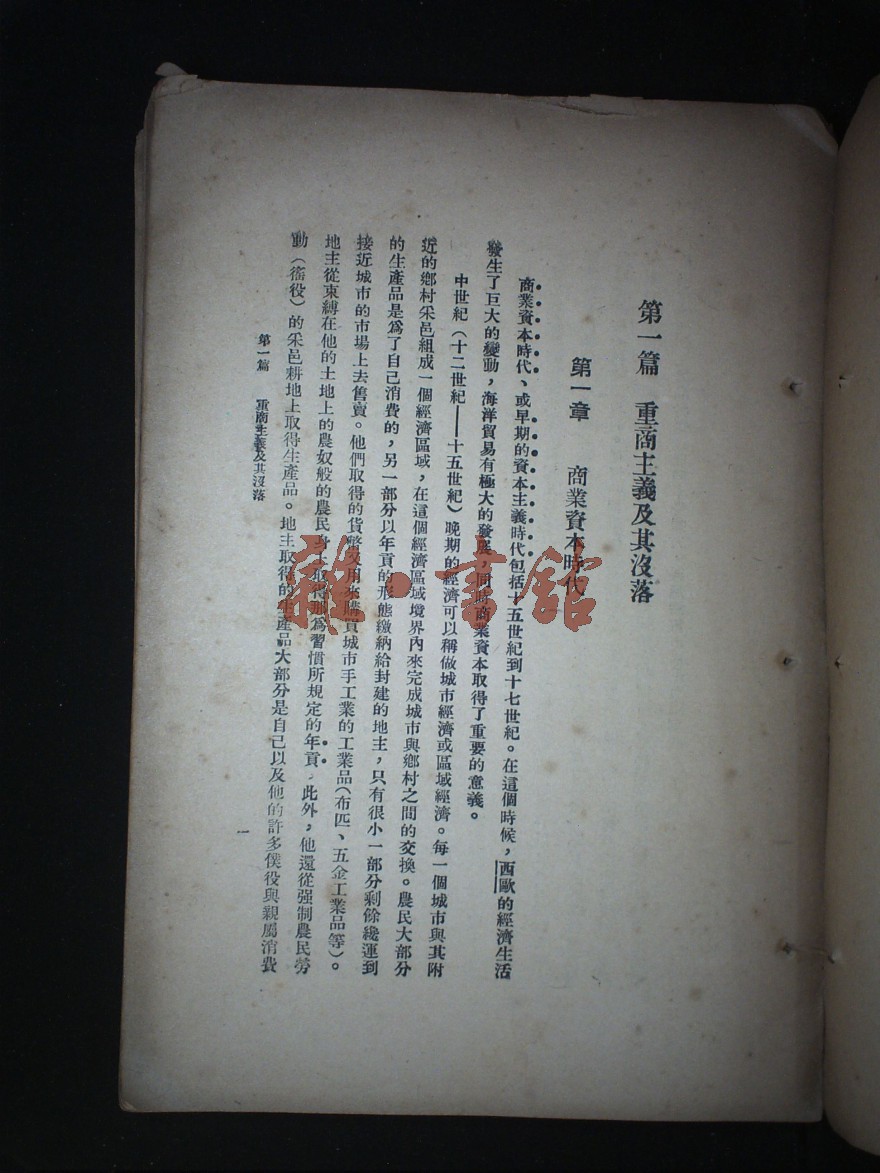 第一篇　重商主義及其沒落
第一章　商業資本時代
商業資本時代、或早期的資本主義時代包括十五世紀到十七世紀。在這個時候，西歐的經濟生活
發生了巨大的變動，海洋貿易有極大的發展，同時商業資本取得了重要的意義。
中世紀（十二世紀——十五世紀）晚期的經濟可以稱做城市經濟或區域經濟。每一個城市與其附
近的鄉村采邑組成一個經濟區域，在這個經濟區域境界內來完成城市與鄉村之間的交換。農民大部分
的生產品是爲了自己消費的，另一部分以年貢的形態繳納給封建的地主，只有很小一部分剩餘纔運到
接近城市的市場上去售賣。他們取得的貨幣又用來購買城市手工業的工業品（布匹、五金工業品等）。
地主從束縛在他的土地上的農奴般的農民身上取得那爲習慣所規定的年貢。此外，他還從强制農民勞
動（徭役）的采邑耕地上取得生產品。地主取得的生產品大部分是自己以及他的許多僕役與親屬消費
第一篇　重商主義及其沒落
一
雜·書館